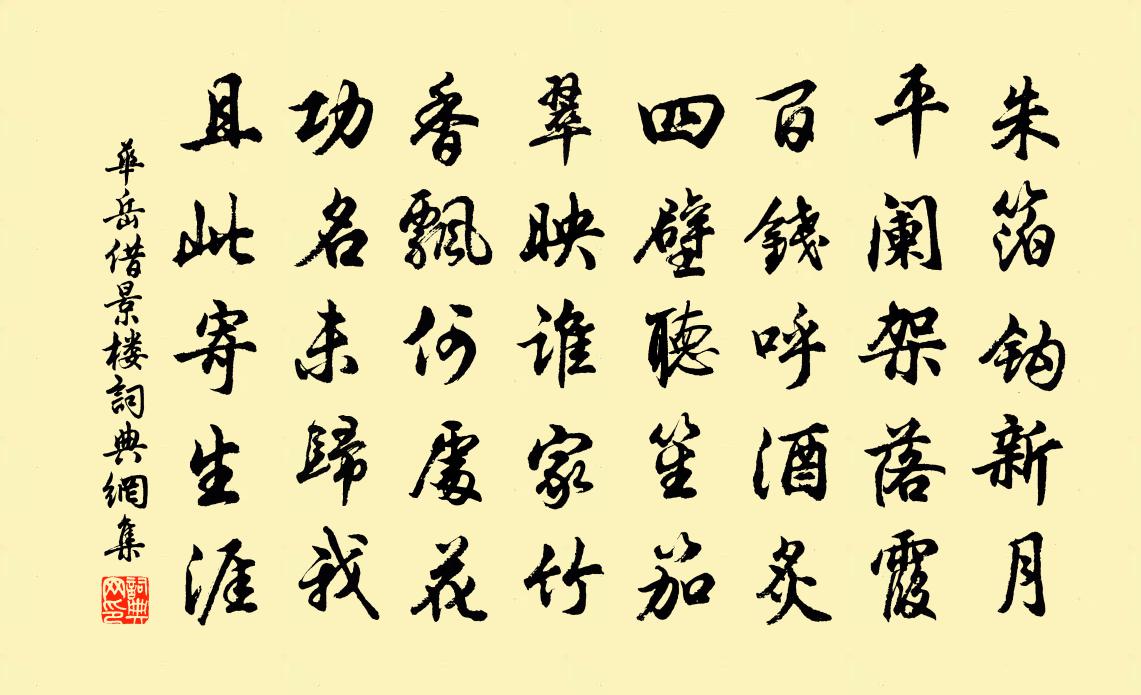 朱箔鈎新月
平阑架落霞
百錢呼酒炙
四壁聽笙笳
翠映誰家竹
香飄何處花
功名未歸我
且此寄生涯
華岳借景楼詞典網集
詞典网印